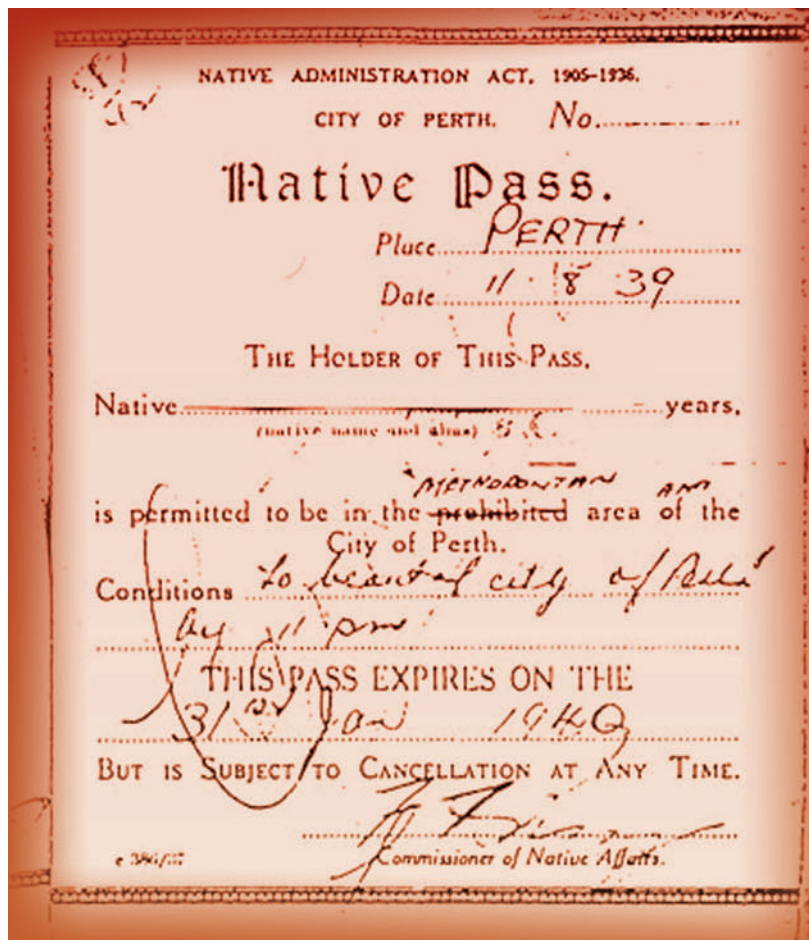 NATIVE ADMINISTRATION ACT, 1905-1936.
CITY OF PERTH. No.
Native Pass.
Place PERTH
Date 11 . 8 39
THE HOLDER OF THIS PASS,
Native years,
(native name and alias)
METROPOLITAN AND
is permitted to be in the prohibited area of the
City of Perth.
Conditions to be out of city of Perth
by 11 pm
THIS PASS EXPIRES ON THE
31st Jan 1940
BUT IS SUBJECT TO CANCELLATION AT ANY TIME.
Commissioner of Native Affairs.